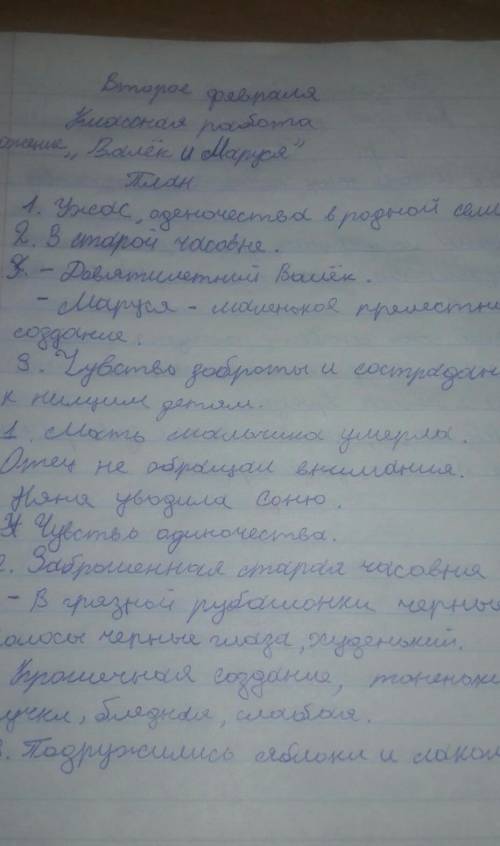 Второе февраля
Классная работа
„Валёк и Маруся"
План
1. Ужас, оденочества в родной
2. В старой часовне.
- Девятилетний Валёк.
- Маруся - маленькое
создание.
3. Чувство доброты и
к нищим детям.
1. Мать мальчика умерла.
Отец не обращал внимания.
Няня уводила Соню.
Чувство одиночества.
Заброшенная старая часовня
- В грязной рубашонки
черные глаза, худенький.
Крошечная создание,
бледная, слабая.
Подружились яблоки и